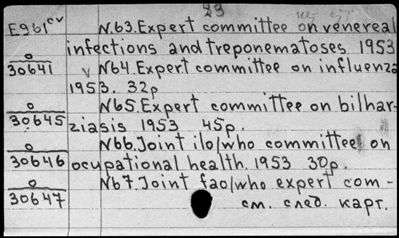 23
E961cv N.63.Expert committee on venereal
infections and treponematoses 1953
0
30641 v N64.Expert committee on influenza
1953. 32p
0
30645 N65.Expert committee on bilhar-
ziasis 1953 45p.
0
30646 N66.Joint ilo/who committee on
ocupational health. 1953 30p.
0
30647 N67.Joint fao/who expert com-
см. след. карт.